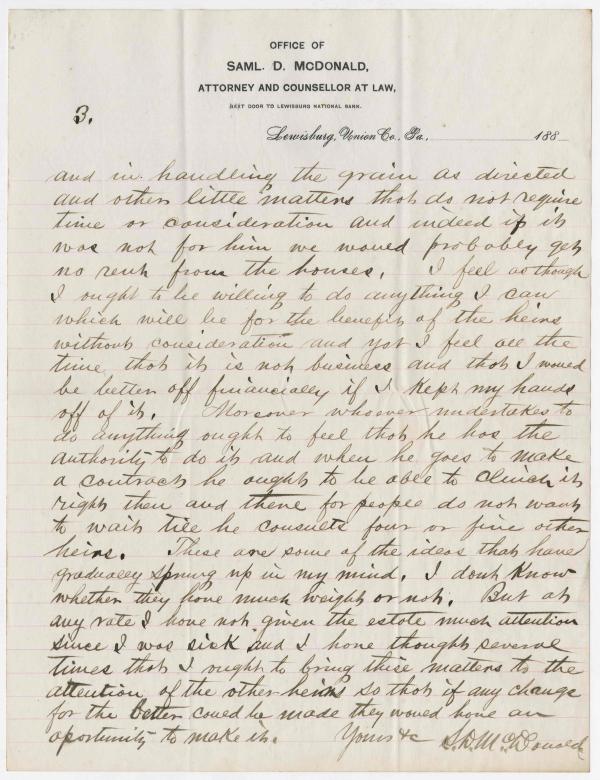 OFFICE OF
SAML. D. McDONALD,
ATTORNEY AND COUNSELLOR AT LAW,
NEXT DOOR TO LEWISBURG NATIONAL BANK.
3.
Lewisburg, Union Co., Pa., 188
and in handling the grain as directed
and other little matters that do not require
time or consideration and indeed if it
was not for him we would probably get
no rent from the houses. I feel as though
I ought to be willing to do anything I can
which will be for the benefit of the heirs
without consideration and yet I feel all the
time that it is not business and that I would
be better off financially if I kept my hands
off of it. Moreover whoever undertakes to
do anything ought to feel that he has the
authority to do it and when he goes to make
a contract he ought to be able to clinch it
right then and there for people do not want
to wait till he consults four or five other
heirs. These are some of the ideas that have
gradually sprung up in my mind. I dont know
whether they have much weight or not. But at
any rate I have not given the estate much attention
since I was sick and I have thought several
times that I ought to bring these matters to the
attention of the other heirs so that if any change
for the better could be made they would have an
oportunity to make it. Yours &c S. D. McDonald